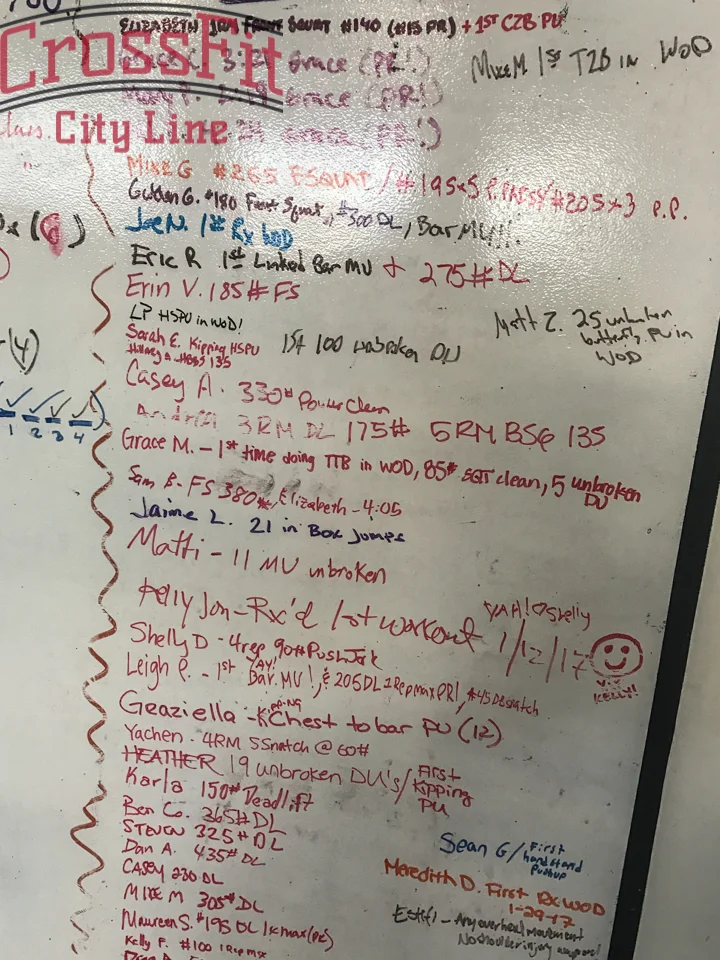 ELIZABETH 1RM FRONT SQUAT #140 (#15 PR) + 1ST C2B PU
3:21 Grace (PR!)
Grace (PR!)
Grace (PR!)
CrossFit
City Line
Mike M 1st T2B in WOD
class.
in
Mike G #265 FSQUAT / #195x5 P.PRESS / #205x3 P.P.
G. #180 Front Squat, #300 DL, Bar MU!!!
Joe N. 1st Rx WOD
Eric R 1st Linked Bar MU + 275# DL
Erin V. 185# FS
LP HSPU in WOD!
Matt Z. 25 unbroken
butterfly PU in
WOD
Sarah E. Kipping HSPU 1st 100 unbroken DU
135
Casey A. 330# Power Clean
Andrea 3RM DL 175# 5RM BSQ 135
Grace M. - 1st time doing TTB in WOD, 85# SQT clean, 5 unbroken
DU
Sam B. FS 380#, Elizabeth - 4:05
Jaime L. 21 in Box Jumps
Matti - 11 MU unbroken
1 2 3 4
Kelly Jon - Rx'd 1st workout 1/12/17
YAH! Shelly
KELLY!
Shelly D - 4 rep 90# Push Jerk
YAY!
Leigh P. - 1st Bar MU!, & 205 DL 1 Rep max PR!, #45 DB snatch
Geaziella - Kipping Chest to bar PU (12)
Yachen - 4RM Snatch @ 60#
HEATHER 19 unbroken DU's / First
Kipping
PU
Karla 150# Deadlift
Ben Co. 365# DL
STEVEN 325# DL
Dan A. 435# DL
CASEY 230 DL
MIKE M 305# DL
Maureen S. #195 DL 1R max (PR)
Kelly F. #100 1 Rep max
Sean G / First
handstand
Pushup
Meredith D. First Rx WOD
1-29-17
Estefi - Any overhead movement
No shoulder injury